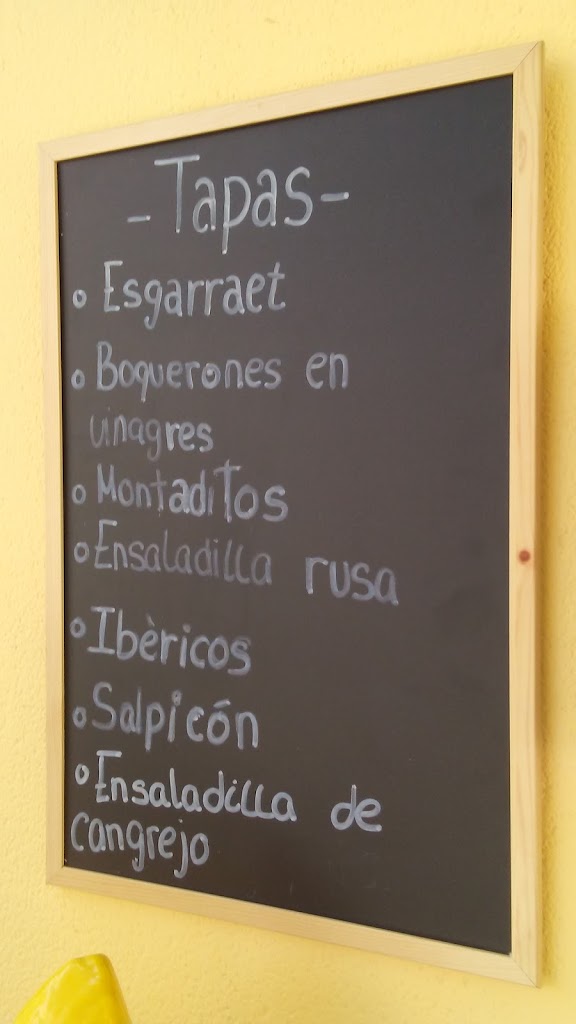 - Tapas -
o Esgarraet
o Boquerones en
vinagres
o Montaditos
o Ensaladilla rusa
o Ibèricos
o Salpicón
o Ensaladilla de
cangrejo